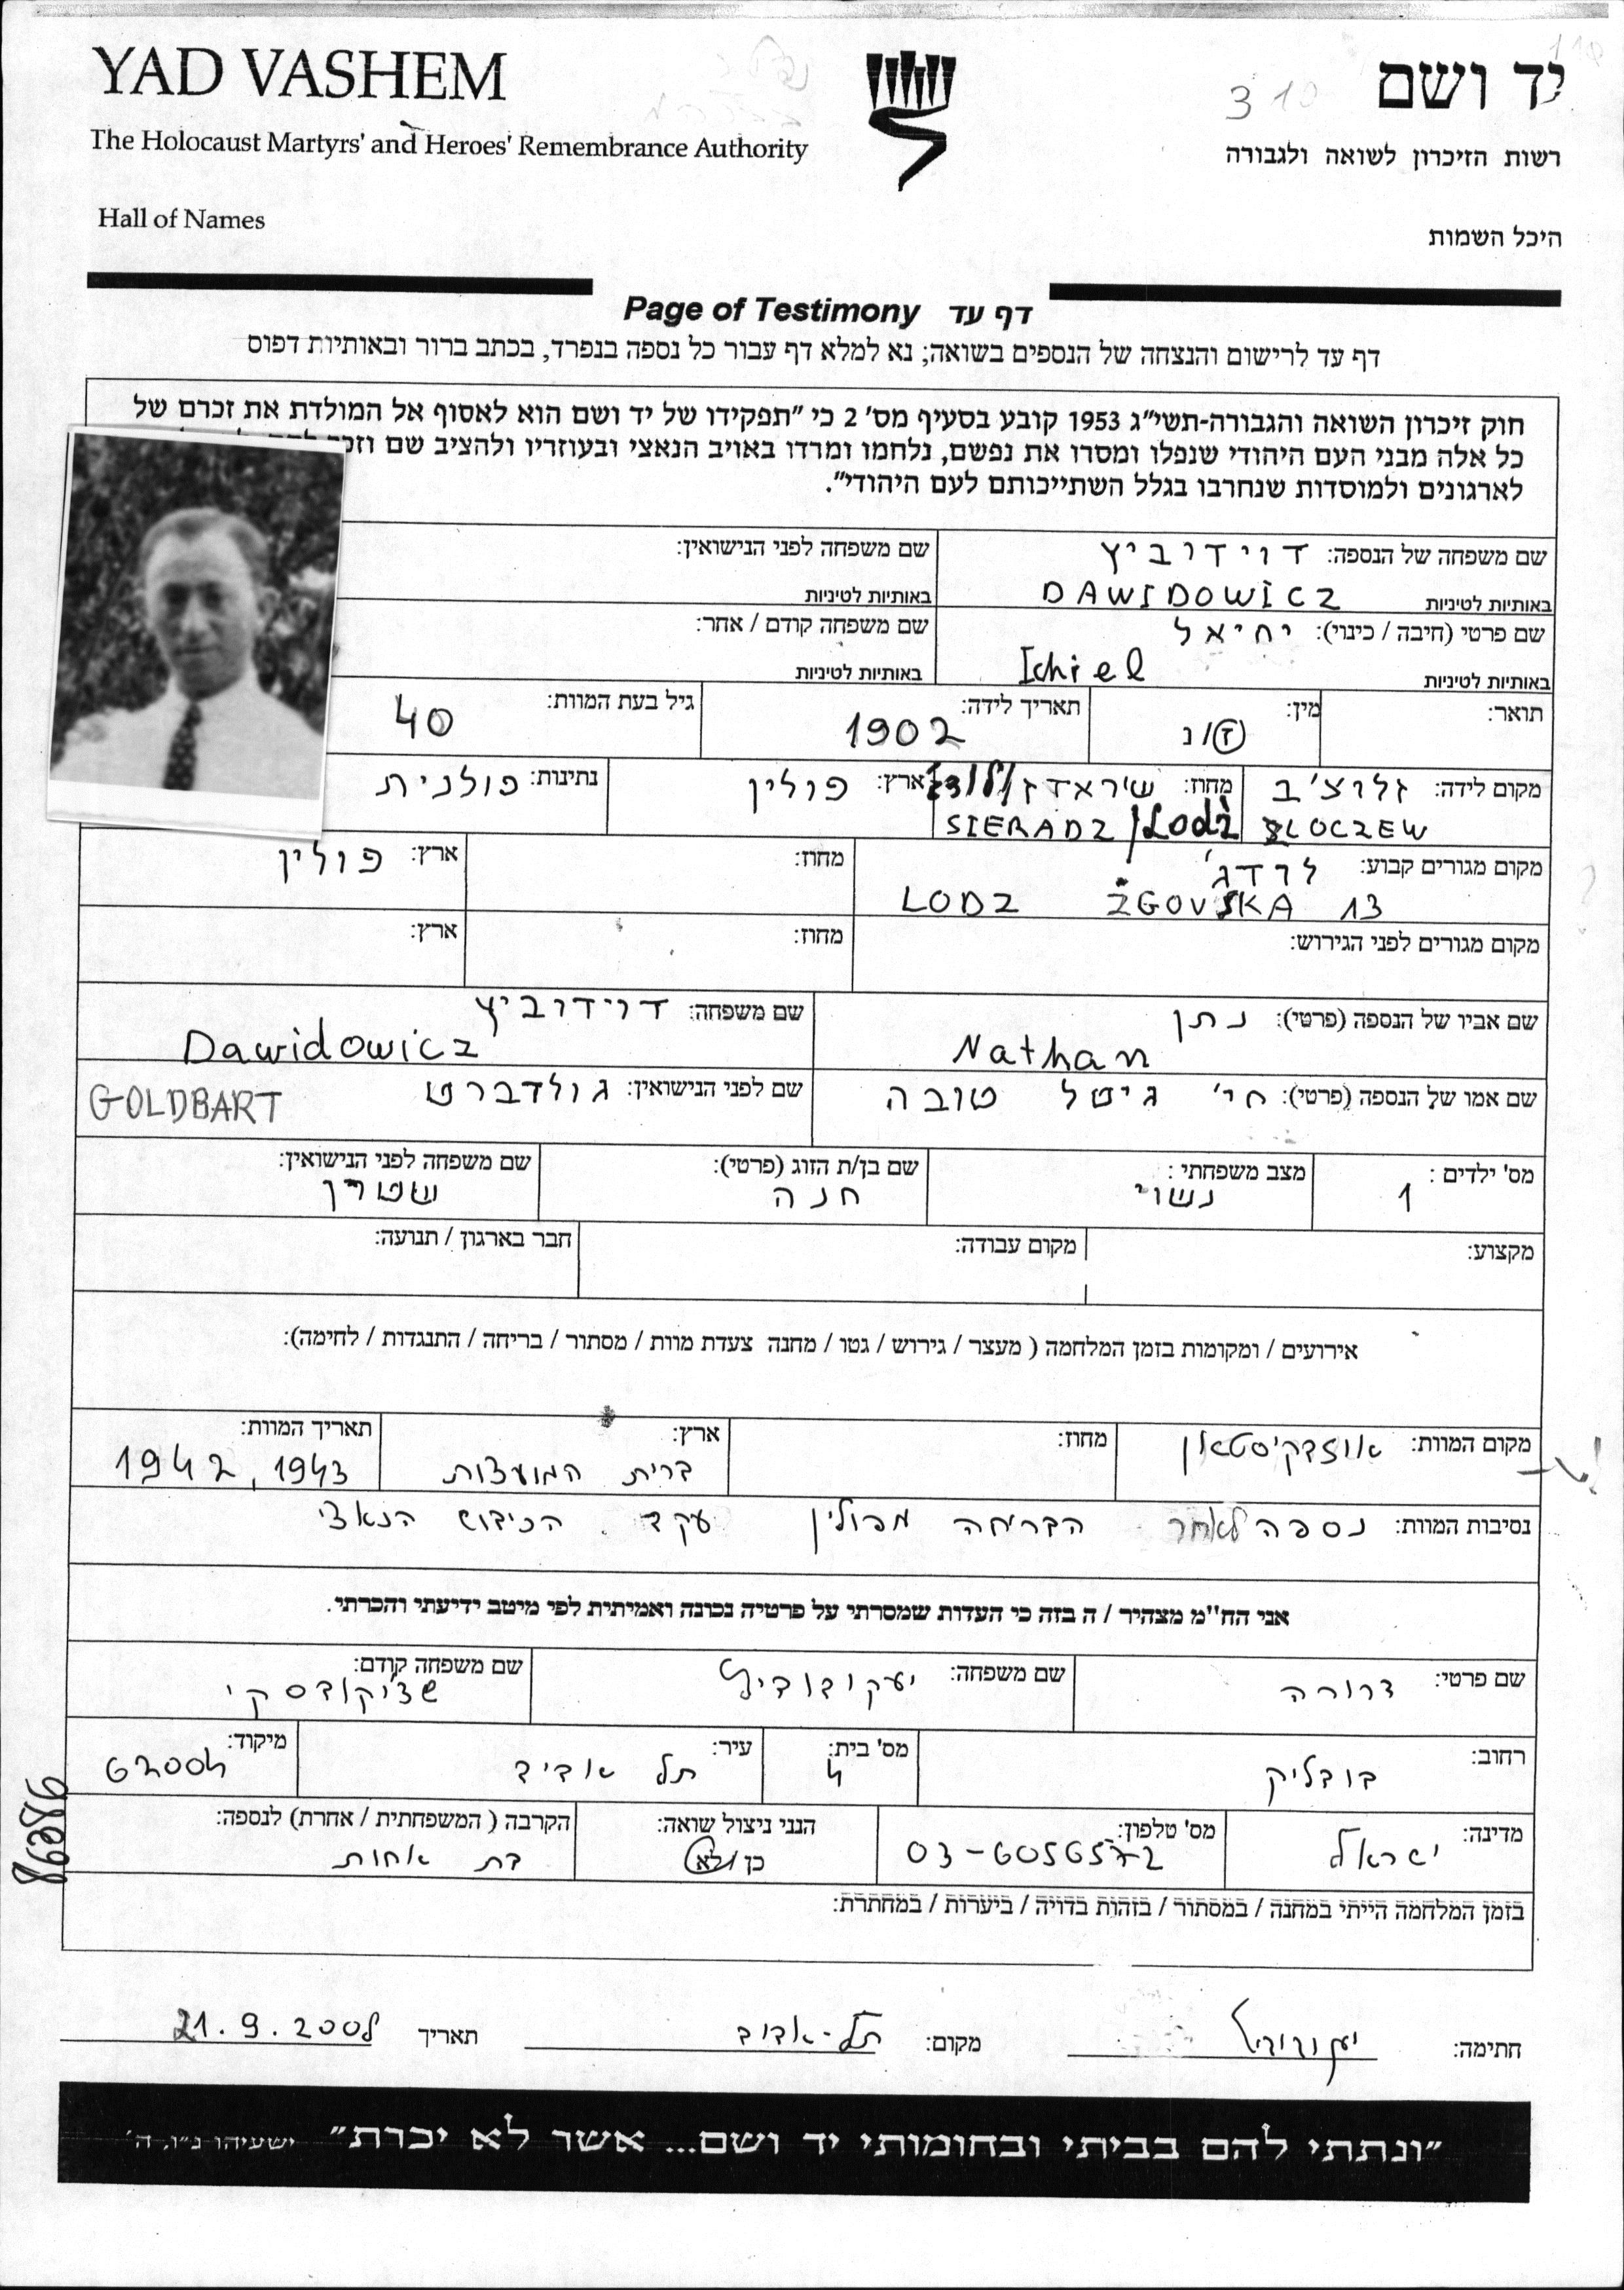 YAD VASHEM
יד ושם
310
The Holocaust Martyrs' and Heroes' Remembrance Authority
רשות הזיכרון לשואה ולגבורה
Hall of Names
היכל השמות
Page of Testimony דף עד
דף עד לרישום והנצחה של הנספים בשואה; נא למלא דף עבור כל נספה בנפרד, בכתב ברור ובאותיות דפוס
חוק זיכרון השואה והגבורה-תשי"ג 1953 קובע בסעיף מס' 2 כי "תפקידו של יד ושם הוא לאסוף אל המולדת את זכרם של
כל אלה מבני העם היהודי שנפלו ומסרו את נפשם, נלחמו ומרדו באויב הנאצי ובעוזריו ולהציב שם וזכר
לארגונים ולמוסדות שנחרבו בגלל השתייכותם לעם היהודי".
שם משפחה של הנספה: דוידוביץ שם משפחה לפני הנישואין:
באותיות לטיניות DAWIDOWICZ באותיות לטיניות
שם פרטי (חיבה / כינוי): יחיאל שם משפחה קודם / אחר:
באותיות לטיניות Ichiel באותיות לטיניות
תואר: מין: ז/נ תאריך לידה: 1902 גיל בעת המוות: 40
מקום לידה: זלוצ'ב מחוז: שיראדז/לודז' ארץ: פולין נתינות: פולנית
ZLOCZEW SIERADZ/Lodż
מקום מגורים קבוע: לודג' מחוז: ארץ: פולין
LODZ ŻGOVSKA 13
מקום מגורים לפני הגירוש: מחוז: ארץ:
שם אביו של הנספה (פרטי): נתן שם משפחה: דוידוביץ
Nathan Dawidowicz
שם אמו של הנספה (פרטי): חי' גיטל טובה שם לפני הנישואין: גולדברט GOLDBART
מס' ילדים: 1 מצב משפחתי: נשוי שם בן/ת הזוג (פרטי): חנה שם משפחה לפני הנישואין: שטרן
מקצוע: מקום עבודה: חבר בארגון / תנועה:
אירועים / ומקומות בזמן המלחמה ( מעצר / גירוש / גטו / מחנה צעדת מוות / מסתור / בריחה / התנגדות / לחימה):
מקום המוות: אוזבקיסטאן מחוז: ארץ: ברית המועצות תאריך המוות: 1942, 1943
נסיבות המוות: נספה לאחר הבריחה מפולין עקב הכיבוש הנאצי
אני הח"מ מצהיר / ה בזה כי העדות שמסרתי על פרטיה נכונה ואמיתית לפי מיטב ידיעתי והכרתי.
שם פרטי: דרורה שם משפחה: יעקובוביץ שם משפחה קודם: שצ'יקובסקי
רחוב: בובליק מס' בית: 4 עיר: תל אביב מיקוד:
מדינה: ישראל מס' טלפון: 03-6056572 הנני ניצול שואה: כן/לא הקרבה ( המשפחתית / אחרת) לנספה: בת אחות
בזמן המלחמה הייתי במחנה / במסתור / בזהות בדויה / ביערות / במחתרת:
חתימה: מקום: תל-אביב תאריך 21.9.200
"ונתתי להם בביתי ובחומותי יד ושם... אשר לא יכרת" ישעיהו נ"ו, ה'